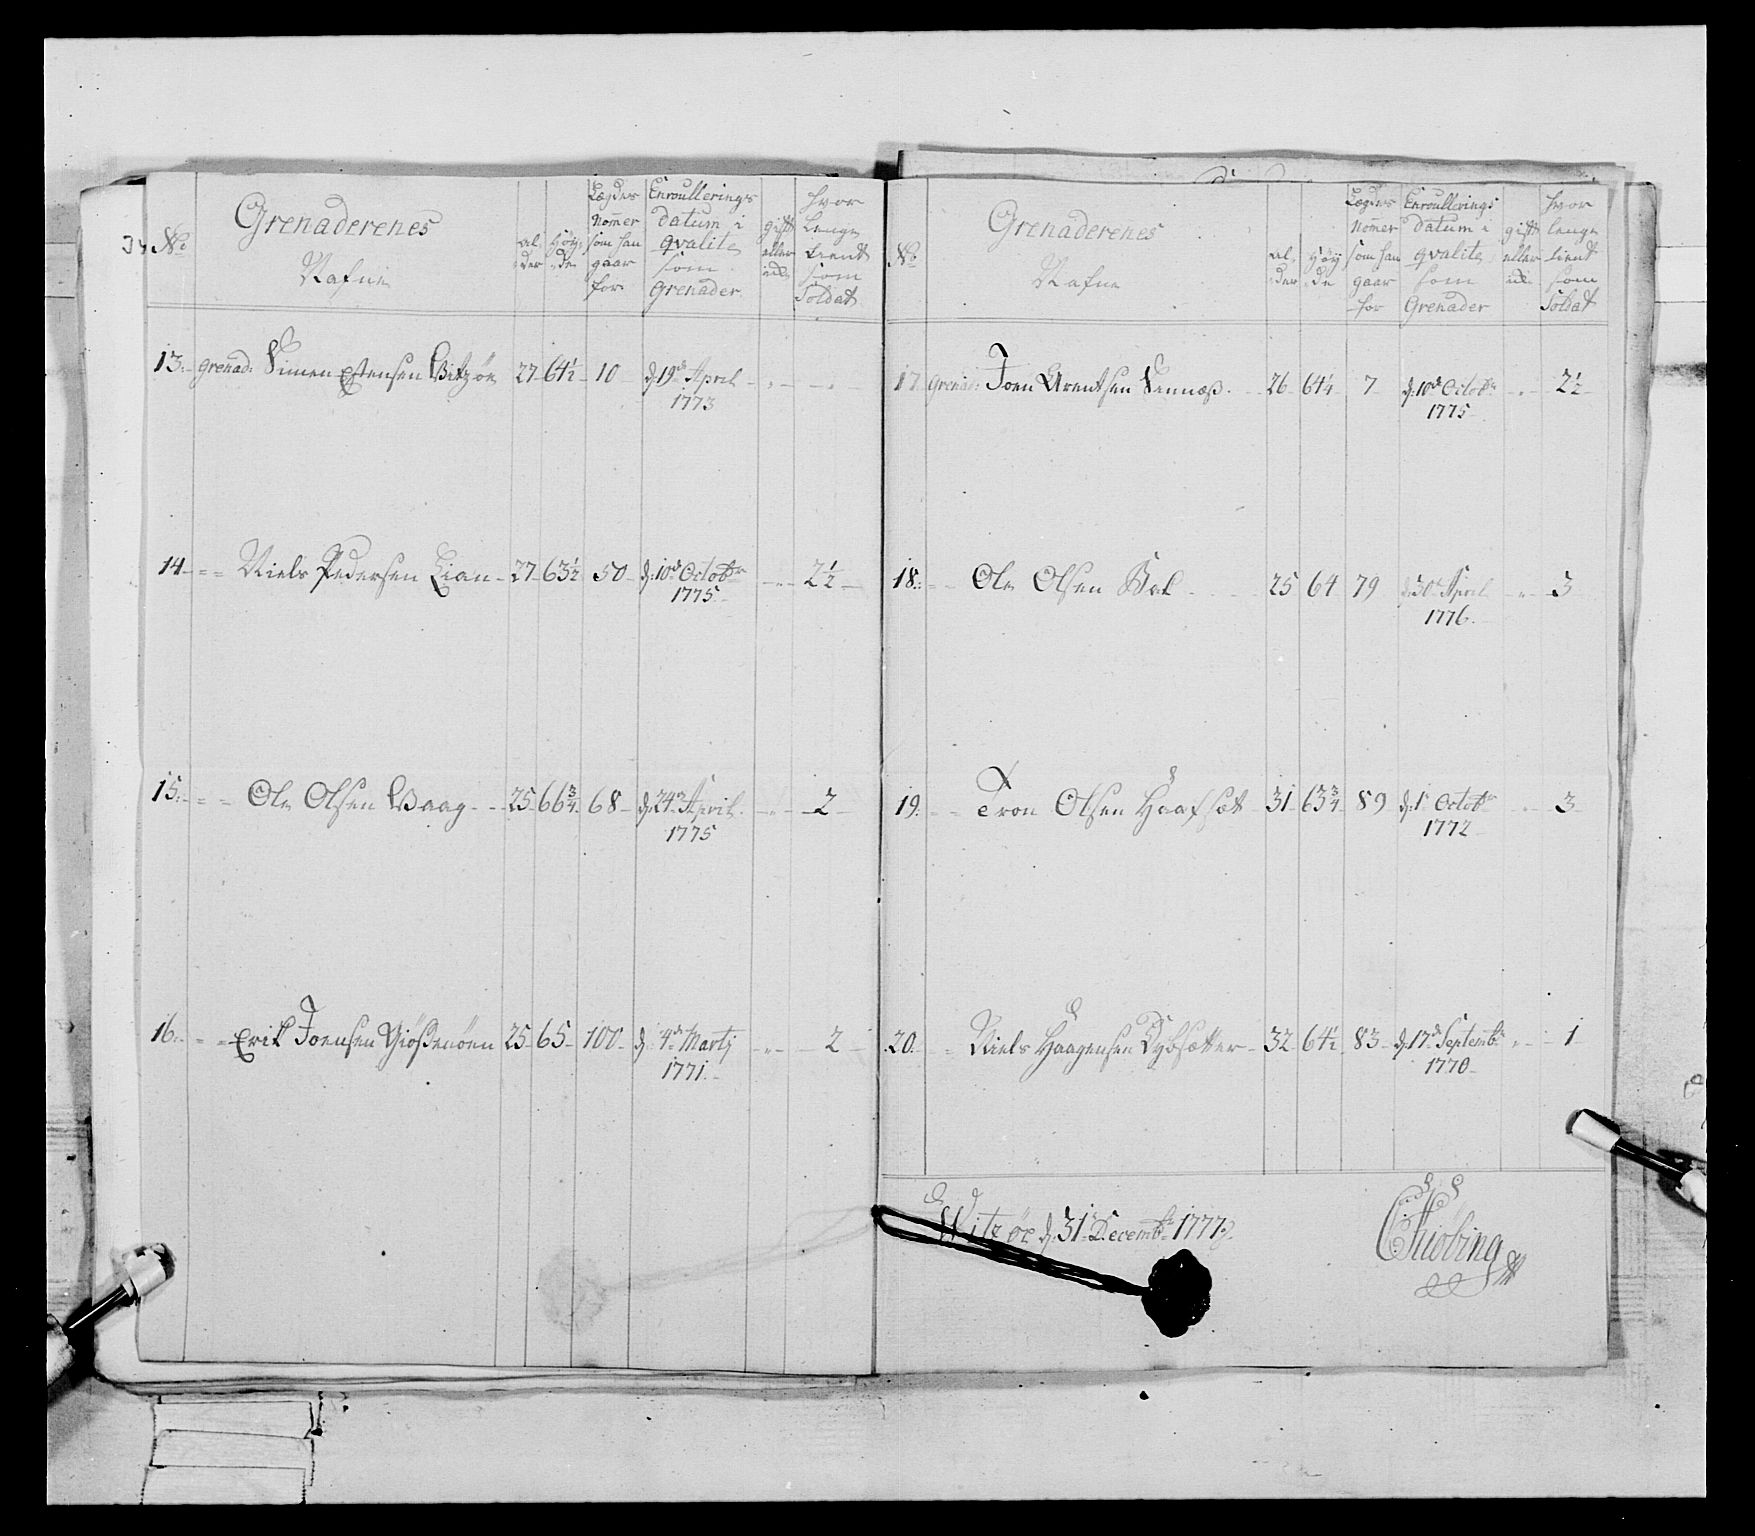 No
Grenaderenes
Nafne
al-
der
Høy-
de
Lægdes
Nom̄er
som han
gaar
for
Enroullerings
datum i
qvalite
som
Grenader
gift
eller
eik
hvor
lenge
tient
som
Soldat
13. Grenad: Simen Estensen Vitzøe 27 64½ 10 d: 19de April
1773
14 Niels Pedersen Lian 27 63½ 50 d: 10de Octobr 2½
1775
15. Ole Olsen Vaag 25 66¾ 68 d: 24de April 2
1775
16. Erik Joensen 25 65 100 d: 4de Martj 2
1771
No
Grenaderenes
Nafne
al-
der
Høy
de
Lægdes
Nom̄er
som han
gaar
for
Enroullerings
datum i
qvalite
som
Grenader
gift
eller
eik
hvor
lenge
tient
som
Soldat
17 Grenad: Joen Arentsen 26 64¼ 7 d: 10de Octobr 2½
1775
18. Ole Olsen 25 64 79 d: 30te April 3
1776
19. Tron Olsen Haafsæt 31 63¾ 89 d: 1te Octobr 3
1772
20. Niels Haagensen Dybsætter 32 64½ 83 d: 17de Septembr 1
1770
Witzøe d: 31te Decembr 1777